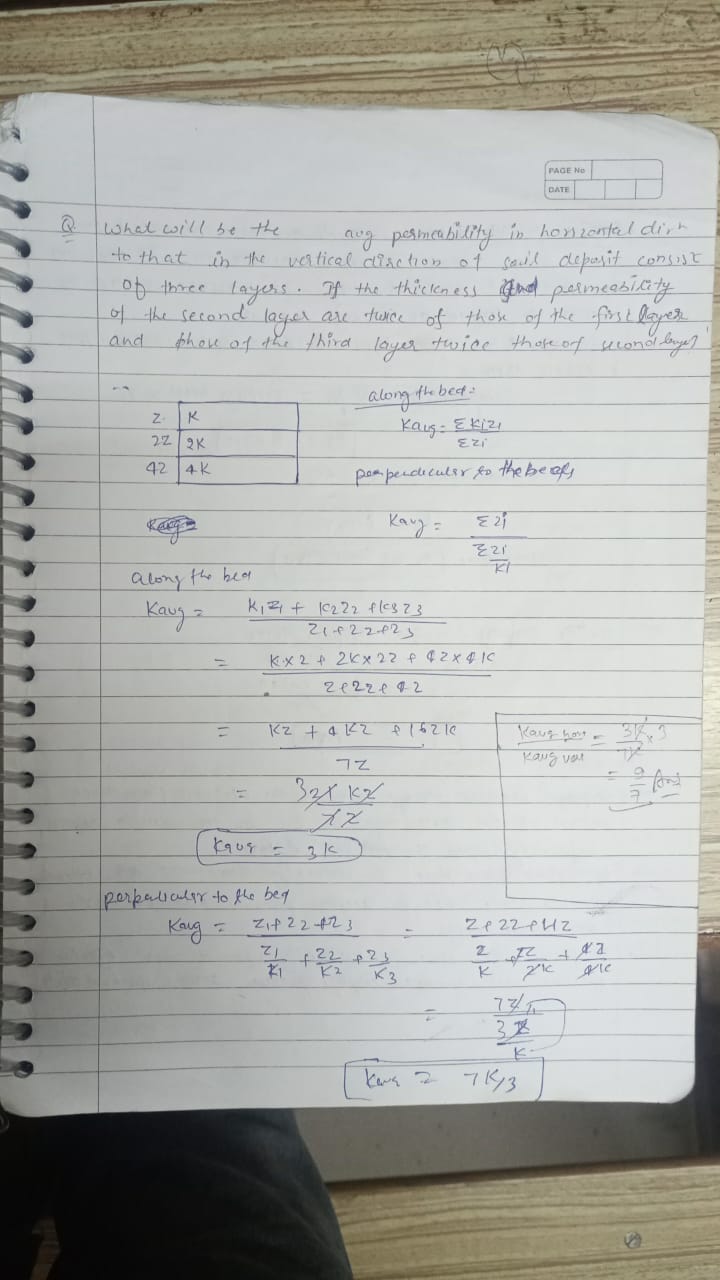 PAGE No
DATE
Q What will be the avg permeability in horizontal dirn
to that in the vertical direction of soil deposit consist
of three layers. If the thickness and permeability
of the second layer are twice of those of the first layer
and those of the third layer twice those of second layer?
along the bed:
Z K
2Z 2K
4Z 4K
Kavg = ΣKizi
Σzi
perpendicular to the beds
Kavg = Σzi
Σzi
Ki
along the bed
Kavg = K1Z1 + K2Z2 + K3Z3
Z1+Z2+Z3
= K×Z + 2K×2Z + 4Z×4K
Z+2Z+4Z
= KZ + 4KZ + 16ZK
7Z
= 321 KZ
7Z
Kavg = 3K
Kavg hor = 3K × 3
Kavg ver 7K
= 9
7 Ans
perpaliculer to the bed
Kavg = Z1+Z2+Z3 = Z+2Z+4Z
Z1 + Z2 + Z3 Z + 2Z + 4Z
K1 K2 K3 K 2K 4K
= 7Z
3Z
K
Kavg = 7K/3